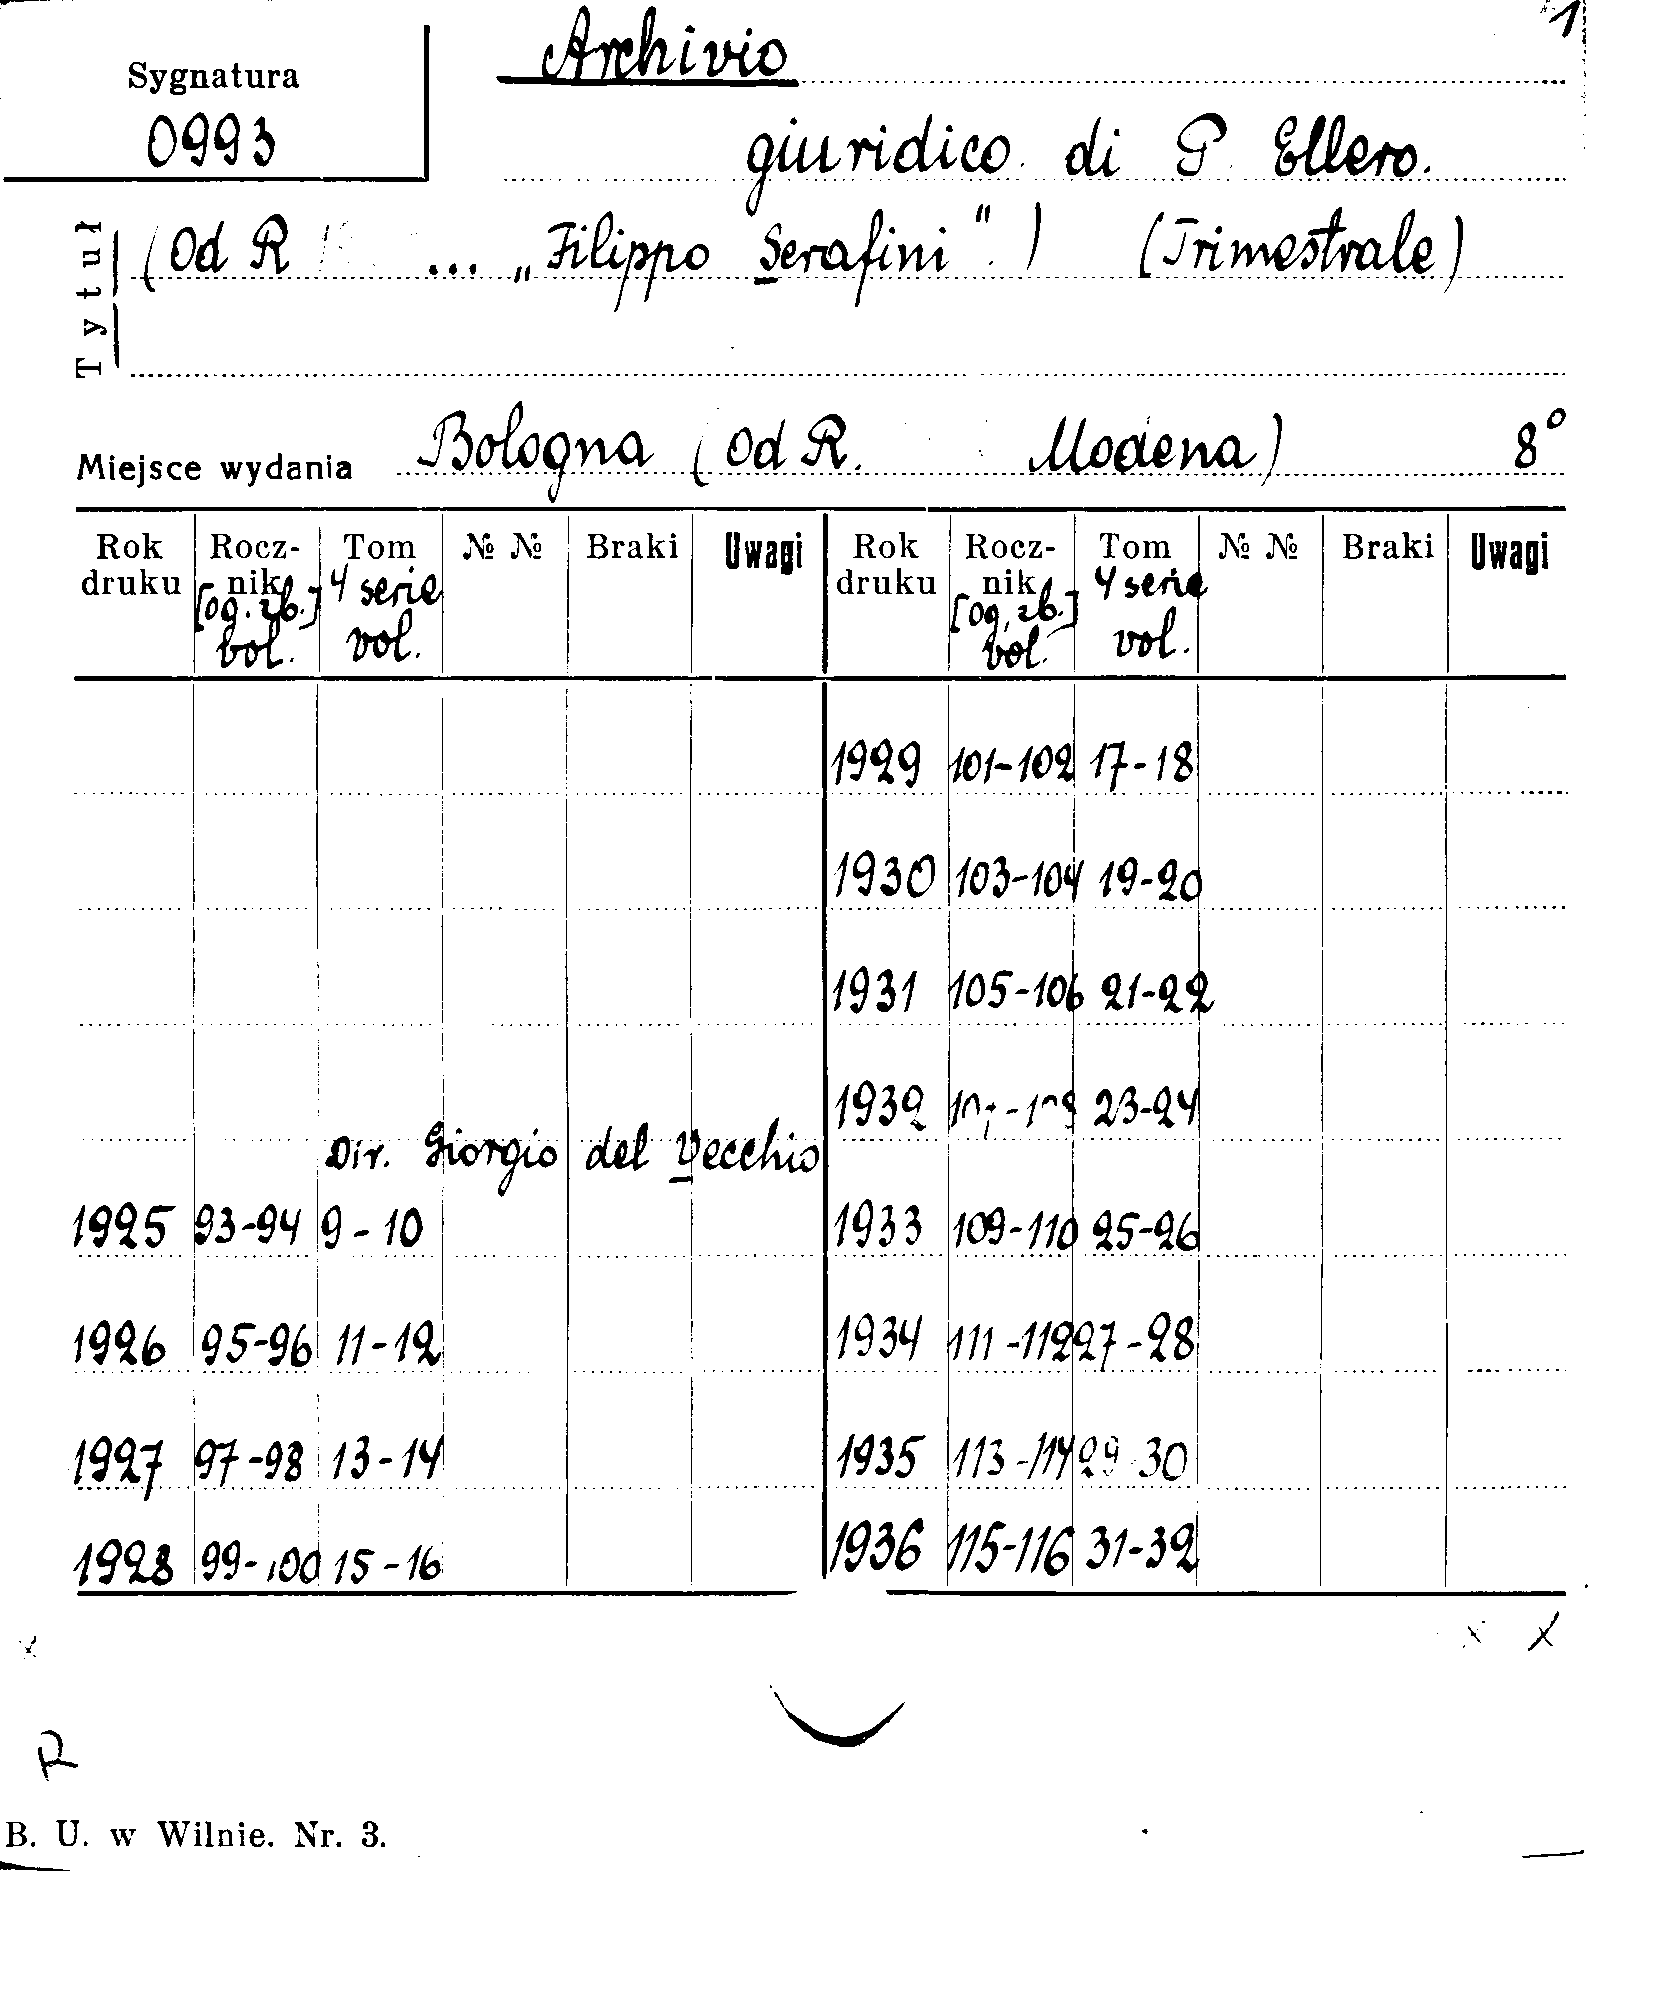 1
Archivio
Sygnatura
0993
giuridico di P. Ellero.
Tytuł
(Od R ... „Filippo Serafini".) (Trimestrale)
Miejsce wydania Bologna (Od R. Modena) 8°
Rok druku Rocznik [og. zb.] vol. Tom 4 serie vol. № № Braki Uwagi Rok druku Rocznik [og. zb.] vol. Tom 4 serie vol. № № Braki Uwagi
1929 101-102 17-18
1930 103-104 19-20
1931 105-106 21-22
1932 23-24
Dir. Giorgio del Vecchio
1925 93-94 9-10 1933 109-110 25-26
1926 95-96 11-12 1934 111-112 27-28
1927 97-98 13-14 1935 113-114 29-30
1928 99-100 15-16 1936 115-116 31-32
x x x
R
B. U. w Wilnie. Nr. 3.